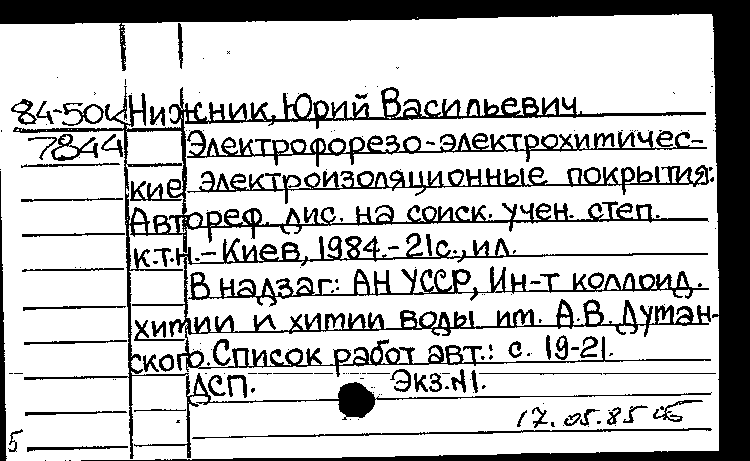 84-50к Нижник, Юрий Васильевич.
7844 Электрофорезо-электрохимичес-
кие электроизоляционные покрытия:
Автореф. дис. на соиск. учен. степ.
к.т.н. - Киев, 1984. - 21с., ил.
В надзаг.: АН УССР, Ин-т коллоид.
химии и химии воды им. А.В. Думан-
ского. Список работ авт.: с. 19-21.
ДСП. Экз. №1.
17.05.85
5